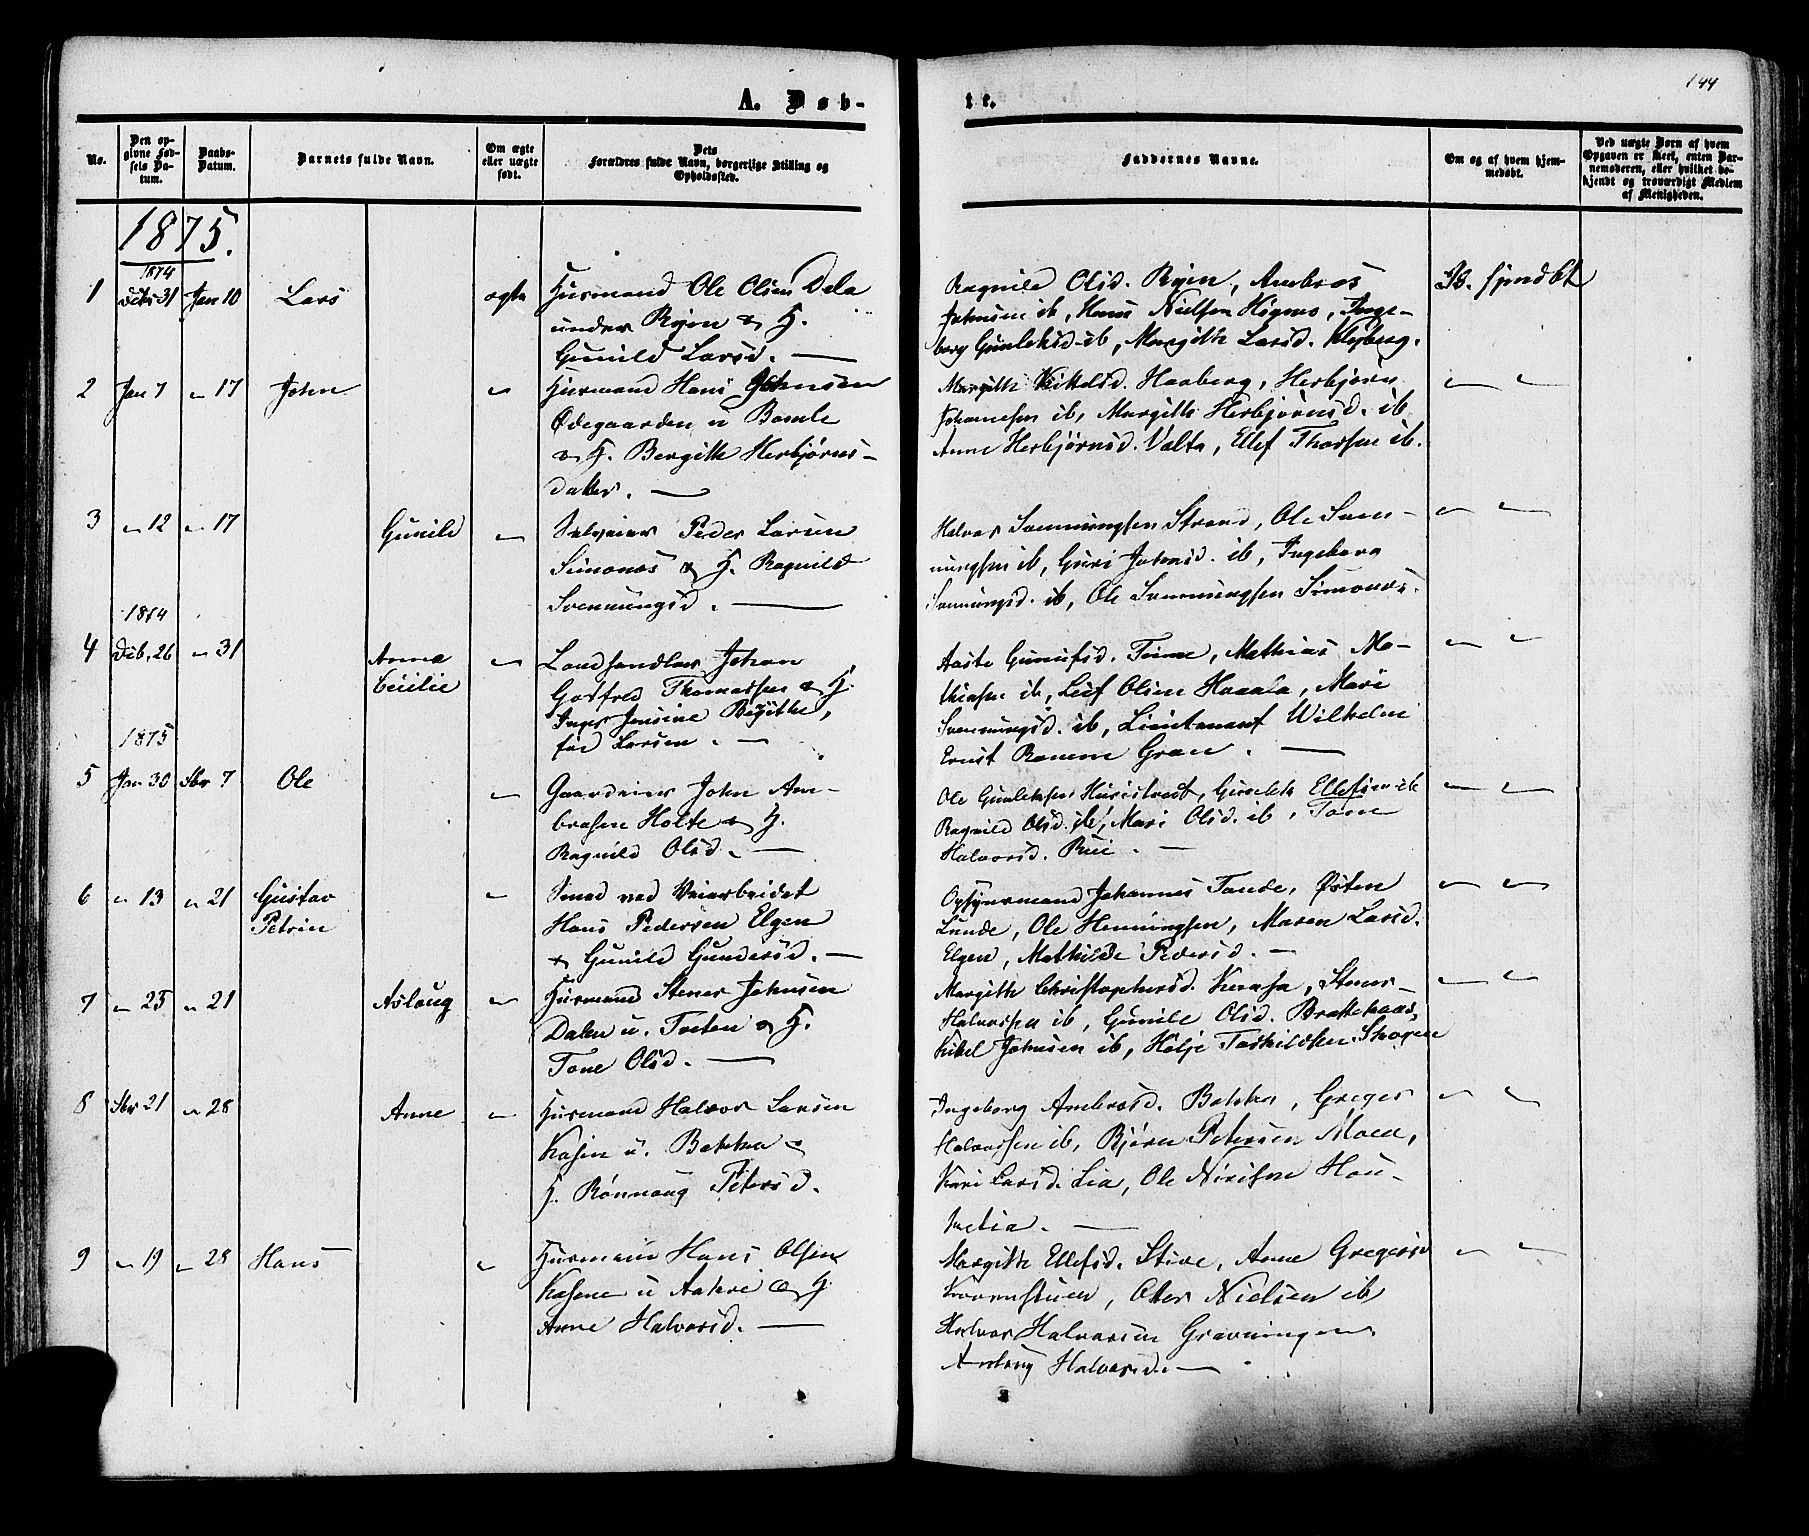 144
A. Døb-
te.
No.
Den op-
givne Fød-
sels Da-
tum.
Daabs-
Datum.
Barnets fulde Navn.
Om ægte
eller uægte
født.
Dets
Forældres fulde Navn, borgerlige Stilling og
Opholdssted.
Faddernes Navne.
Om og af hvem hjem-
medøbt.
Ved uægte Børn af hvem
Opgaven er skeet, enten Bar-
nemoderen, eller hvilket be-
kjendt og troværdigt Medlem
af Menigheden.
1875.
1874
1 31 Jan 10 Lars ægte
Husmand Ole Olsen Dala
under Ryen & H.
Gunild Larsd.
Ragnild Olsd. Ryen, Ambros
Johnsen ib, Hans Nielsen Høgnes, Inge-
borg Gunleksd ib, Margith Larsd. Klyberg.
2 Jan 7 " 17 John "
Husmand Hans Johnsen
Ødegaarden u Bamle
& H. Bergith Herbjørns-
datter.
Margith Kittilsd. Haaberg, Herbjørn
Johannesen ib, Margith Herbjørnsd. ib
Anne Herbjørnsd. Valta, Ellef Thorsen ib.
3 " 12 " 17 Gunild "
Selveier Peder Larsen
Simonæs & H. Ragnild
Svennungsd.
Halvor Svennungsen Strand, Ole Sven-
nungsen ib, Guri Johnsd. ib, Ingeborg
Svennungsd. ib, Ole Svennungsen Simones.
1874
4 Deb. 26 " 31 Anna
Cecilie "
Landhandler Johan
Gotfred Thomassen & H.
Inger Jensine Birgithe,
fød Larsen.
Aaste Gunulfsd. Teine, Mathias Ma-
thiasen ib, Leif Olsen Haaala, Mari
Svennungsd. ib, Lieutenant Wilhelm
Ernst Gran.
1875
5 Jan 30 Fbr 7 Ole "
Gaardeier John Am-
brosen Holte & H.
Ragnild Olsd.
Ole Gunleksen Ellefsen ib
Ragnild Olsd. ib, Mari Olsd. ib, Tone
Halvorsd. Rui.
6 " 13 " 21 Gustav
Petrin "
Smed ved Veiarbeidet
Hans Pedersen Elgen
& Gunild Gundersd.
Opsynsmand Johannes Tande, Østen
Lunde, Ole Henningsen, Maren Larsd.
Elgen, Mathilde Pedersd.
7 " 25 " 21 Aslaug "
Husmand Stener Johnsen
Dalen u. Tveten & H.
Tone Olsd.
Margith Christophersd. Kaasa, Stener
Halvorsen ib, Gunild Olsd. Brattekaas,
Kittel Johnsen ib, Helje Torkildsen Skogen
8 Fbr 21 " 28 Anne "
Husmand Halvor Larsen
Kosin u. Bakka &
H. Rønnaug Petersd.
Ingeborg Ambrosd. Bakka, Greger
Halvorsen ib, Bjørn Petersen Moen,
Kari Larsd. Lia, Ole Nirisen Hau-
9 " 19 " 28 Hans "
Husmand Hans Olsen
Kasene u Aakre & H
Anne Halvorsd.
Margith Ellefsd. Stive, Anne Gregersd
Kvernstuen, Nielsen ib
Halvor Halvorsen Gravningen
Aslaug Halvorsd.